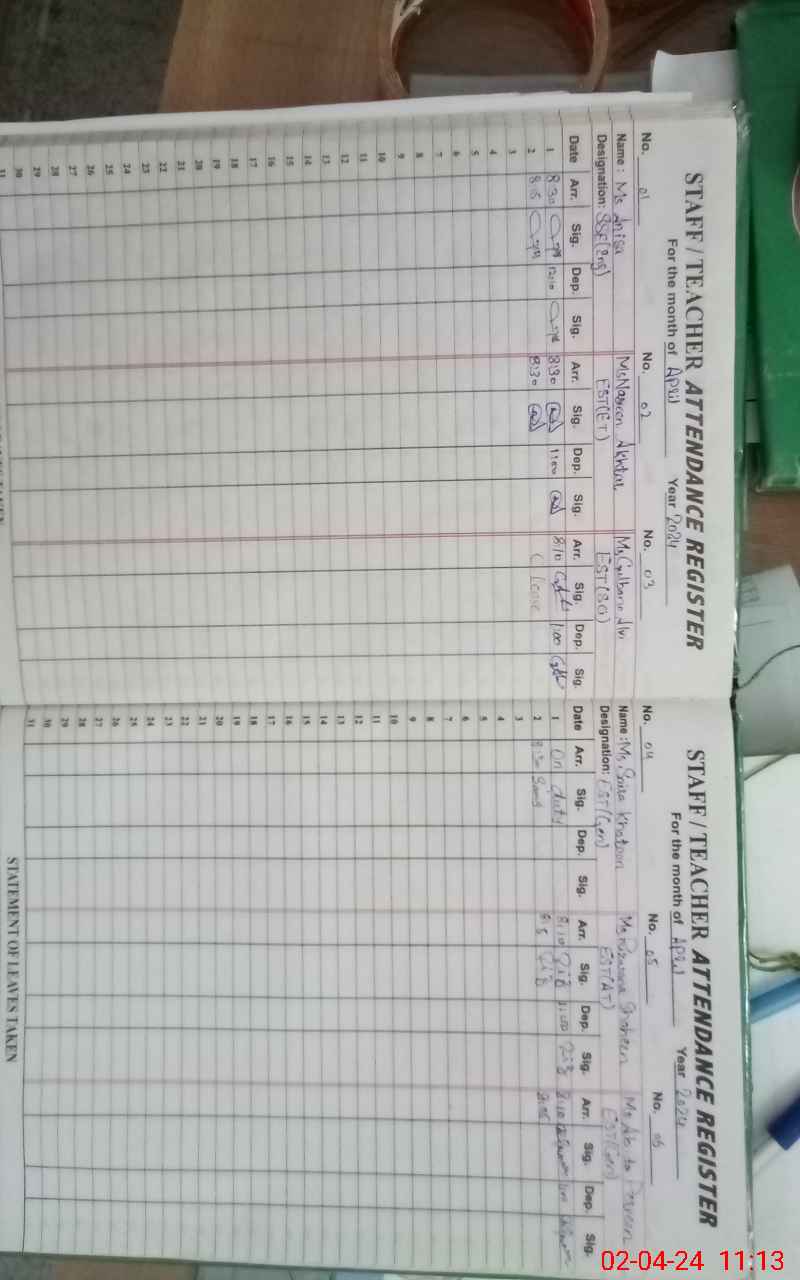 STAFF / TEACHER ATTENDANCE REGISTER
For the month of April Year 2024
No. 01 No. 02 No. 03
Name : Ms Anisa Ms Nasreen Akhtar Ms Gulbano Alvi
Designation: SSE(Eng) EST(ET) EST(SG)
Date Arr. Sig. Dep. Sig. Arr. Sig. Dep. Sig. Arr. Sig. Dep. Sig.
1 8:30 12:10 8:30 11:00 8:10 1:00
2 8:15 8:30 Leave
3
4
5
6
7
8
9
10
11
12
13
14
15
16
17
18
19
20
21
22
23
24
25
26
27
28
29
30
31
STAFF / TEACHER ATTENDANCE REGISTER
For the month of April Year 2024
No. 04 No. 05 No. 06
Name : Ms. Khatoon Ms Rizwana Shaheen Ms Parveen
Designation: EST(Gen) EST(AT) EST(Gen)
Date Arr. Sig. Dep. Sig. Arr. Sig. Dep. Sig. Arr. Sig. Dep. Sig.
1 On duty 8:10 11:00 8:10
2 8:30 8:5 8:05
3
4
5
6
7
8
9
10
11
12
13
14
15
16
17
18
19
20
21
22
23
24
25
26
27
28
29
30
31
STATEMENT OF LEAVES TAKEN
02-04-24 11:13